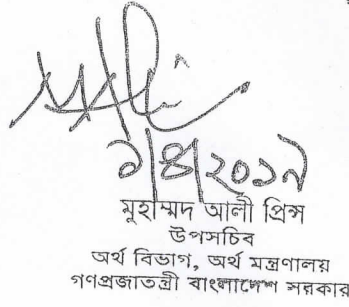 ১/৪/২০১৯
মুহাম্মদ আলী প্রিন্স
উপসচিব
অর্থ বিভাগ, অর্থ মন্ত্রণালয়
গণপ্রজাতন্ত্রী বাংলাদেশ সরকার